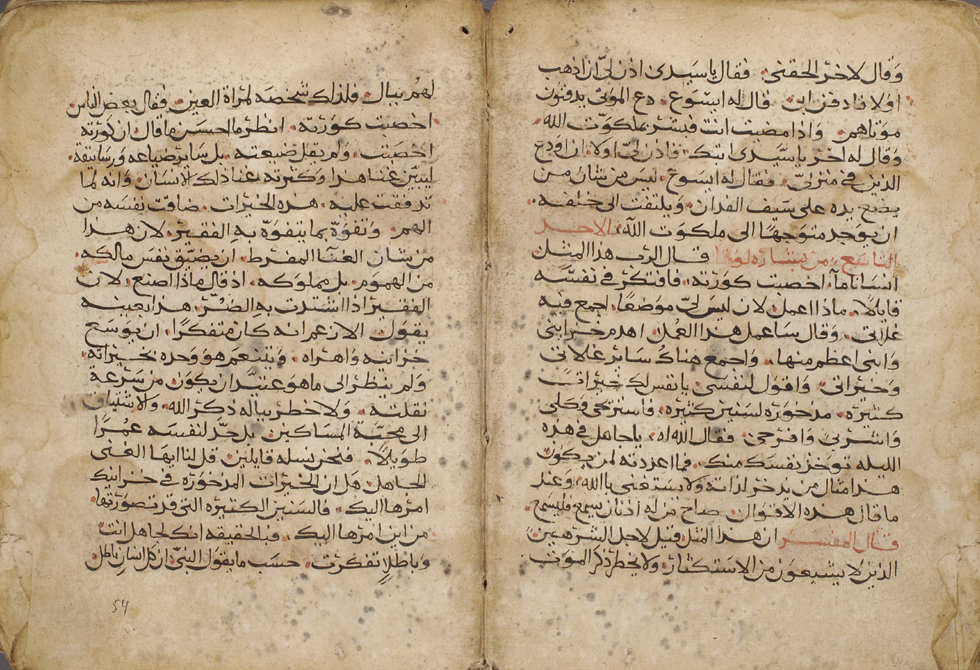 وقال لاخر الحقني. فقال يا سيدي اذن لي ان اذهب
اولا فادفن ابي. قال له ايسوع. دع الموتى يدفنون
موتاهم. واذا مضيت انت فبشر بملكوت الله.
وقال له اخر يا سيدي اتبعك. فاذن لي اولا ان اودع
الذين في منزلي. فقال له ايسوع. ليس من شان من
يضع يده على سيف الفدان. ويلتفت الى خلفه.
ان يوجد متوجها الى ملكوت الله. الاحد
التاسع. من بشارة لوقا. قال الرب هذا المثل
انسانا ما. اخصبت كورته. فافتكر في نفسه
قايلا. ماذا اعمل لان ليس لي موضعا. اجمع فيه
غلاتي. وقال ساعمل هذا العمل. اهدم خزايني
وابني اعظم منها. واجمع هناك ساير غلاتي
وخيراتي. واقول لنفسي. يا نفس لك خيرات
كثيره. مدخوره لسنين كثيره. فاستريحي وكلي
واشربي وافرحي. فقال الله له. يا جاهل في هذه
الليله توخذ نفسك منك. فما اعددته لمن يكون
هذا مثال من يدخر لذاته ولا يستغني بالله. وعند
ما قال هذه الاقوال. صاح من له اذنان يسمع فليسمع
قال المفسر ان هذا المثل قيل لاجل الشرهين
الذين لا يشبعون من الاستكثار. ولا يخطر ذكر الموت
لهم ببال. فلذلك شخصه لمراة العين. فقال بعض الناس
اخصبت كورته. انظر ما احسن ما قال ان كورته
اخصبت. ولم يقل ضيعته. بل ساير ضياعه ورساتيقه
ليبين غناه هذا وكثرته غنا ذلك الانسان. وانه لما
تدفقت عليه. هذه الخيرات. ضاقت نفسه من
الهم. وتفوه بما يتفوه به الفقير. لان هذا
من شان الغنا المفرط. ان يضيق نفس مالكه
من الهموم. بل مملوكه. اذ قال ماذا اصنع. لان
الفقير اذا اشتدت به الضر. هذا بعينه
يقول. الا زعم انه كان متفكرا. ان يوسع
خزاينه واهراه. ويتنعم هو وحده بخيراته.
ولم ينظر الى ما هو عتيد ان يكون من سرعة
نقلته. ولا خطر بباله ذكر الله. ولا اشتياق
الى محبة المساكين. بل حد لنفسه عمرا
طويلا. فنحن نسله قايلين. قل لنا ايها الغني
الجاهل. هل ان الخيرات المدخوره في خزاينك
امرها اليك. فالسنين الكثيره التي قد تصورتها
من اين امرها اليك. فبالحقيقه انك لجاهل انت
وباطل تفكرت. حسب ما يقول النبي ان كل انسان باطل
54